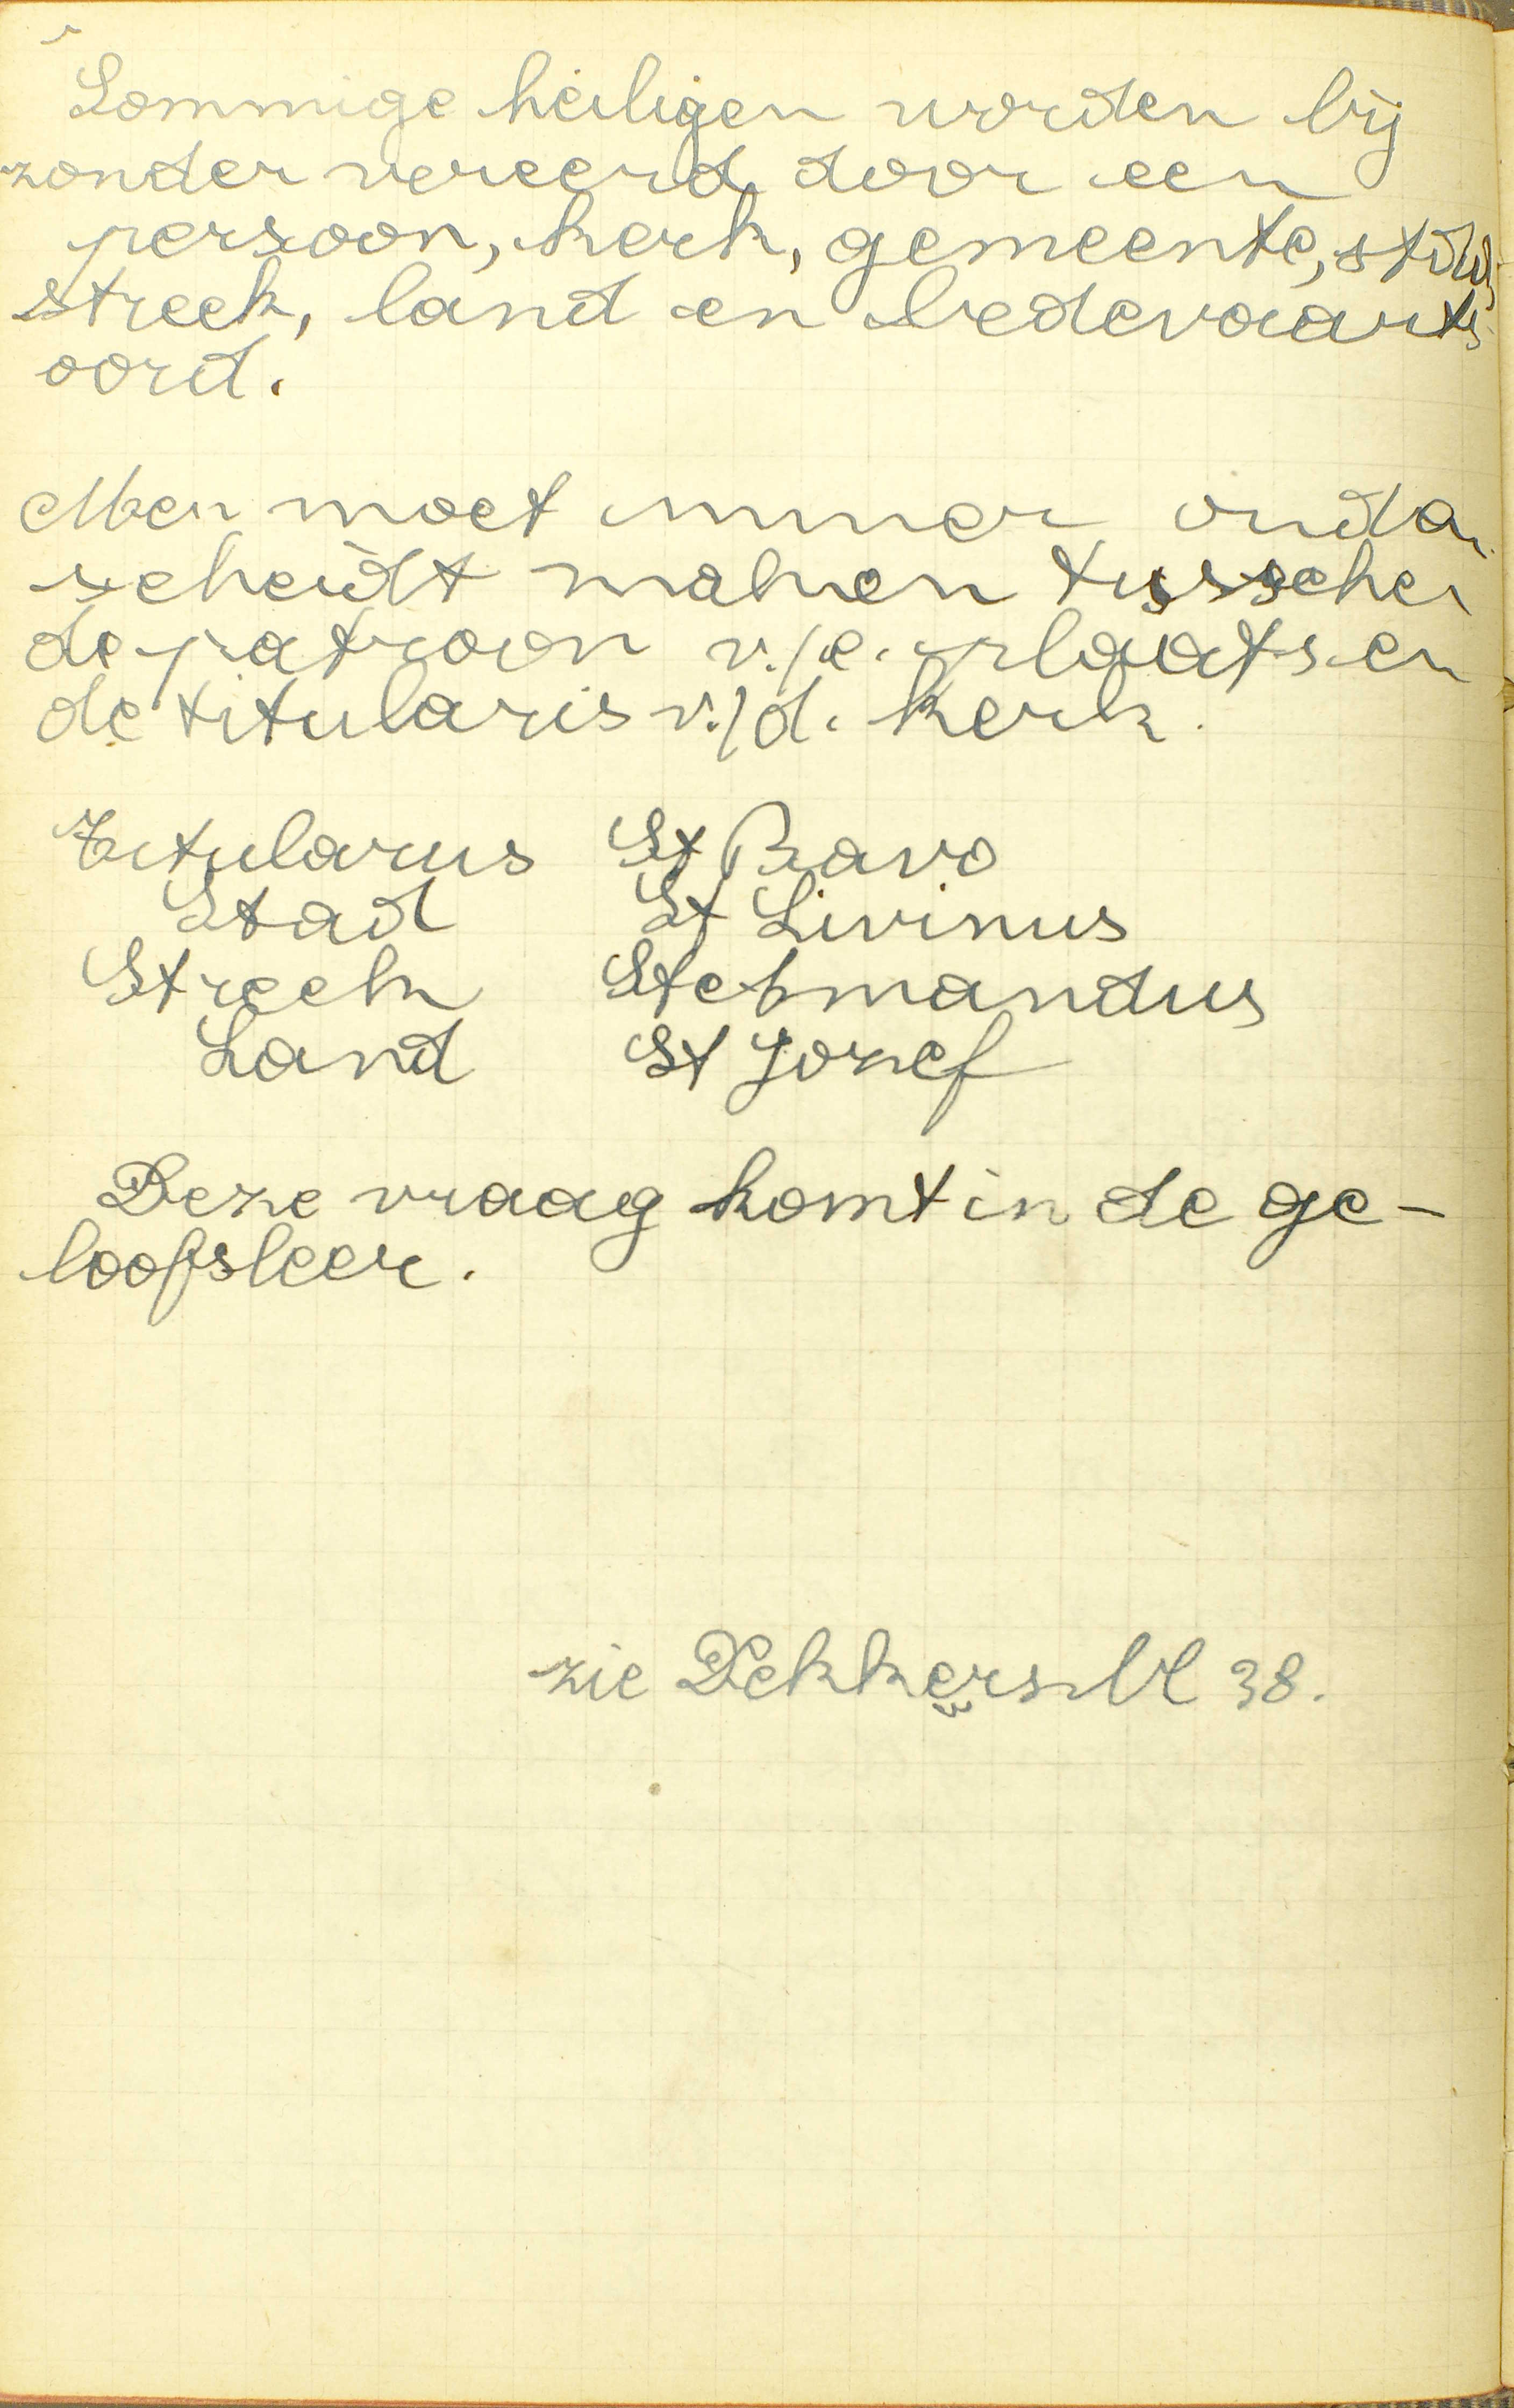 Sommige heiligen worden bij
zonder vereerd door een
persoon, kerk, gemeente, stad,
streek, land en bedevaarts
oord.
Men moet immer onder
scheidt maken tusschen
de patroon v./e. plaats en
de titularis v./d. kerk.
Titularus St Bavo
Stad St Livinus
Streek St Amandus
Land St Jozef
Deze vraag komt in de ge-
loofsleer.
zie Dekkers bl 38.